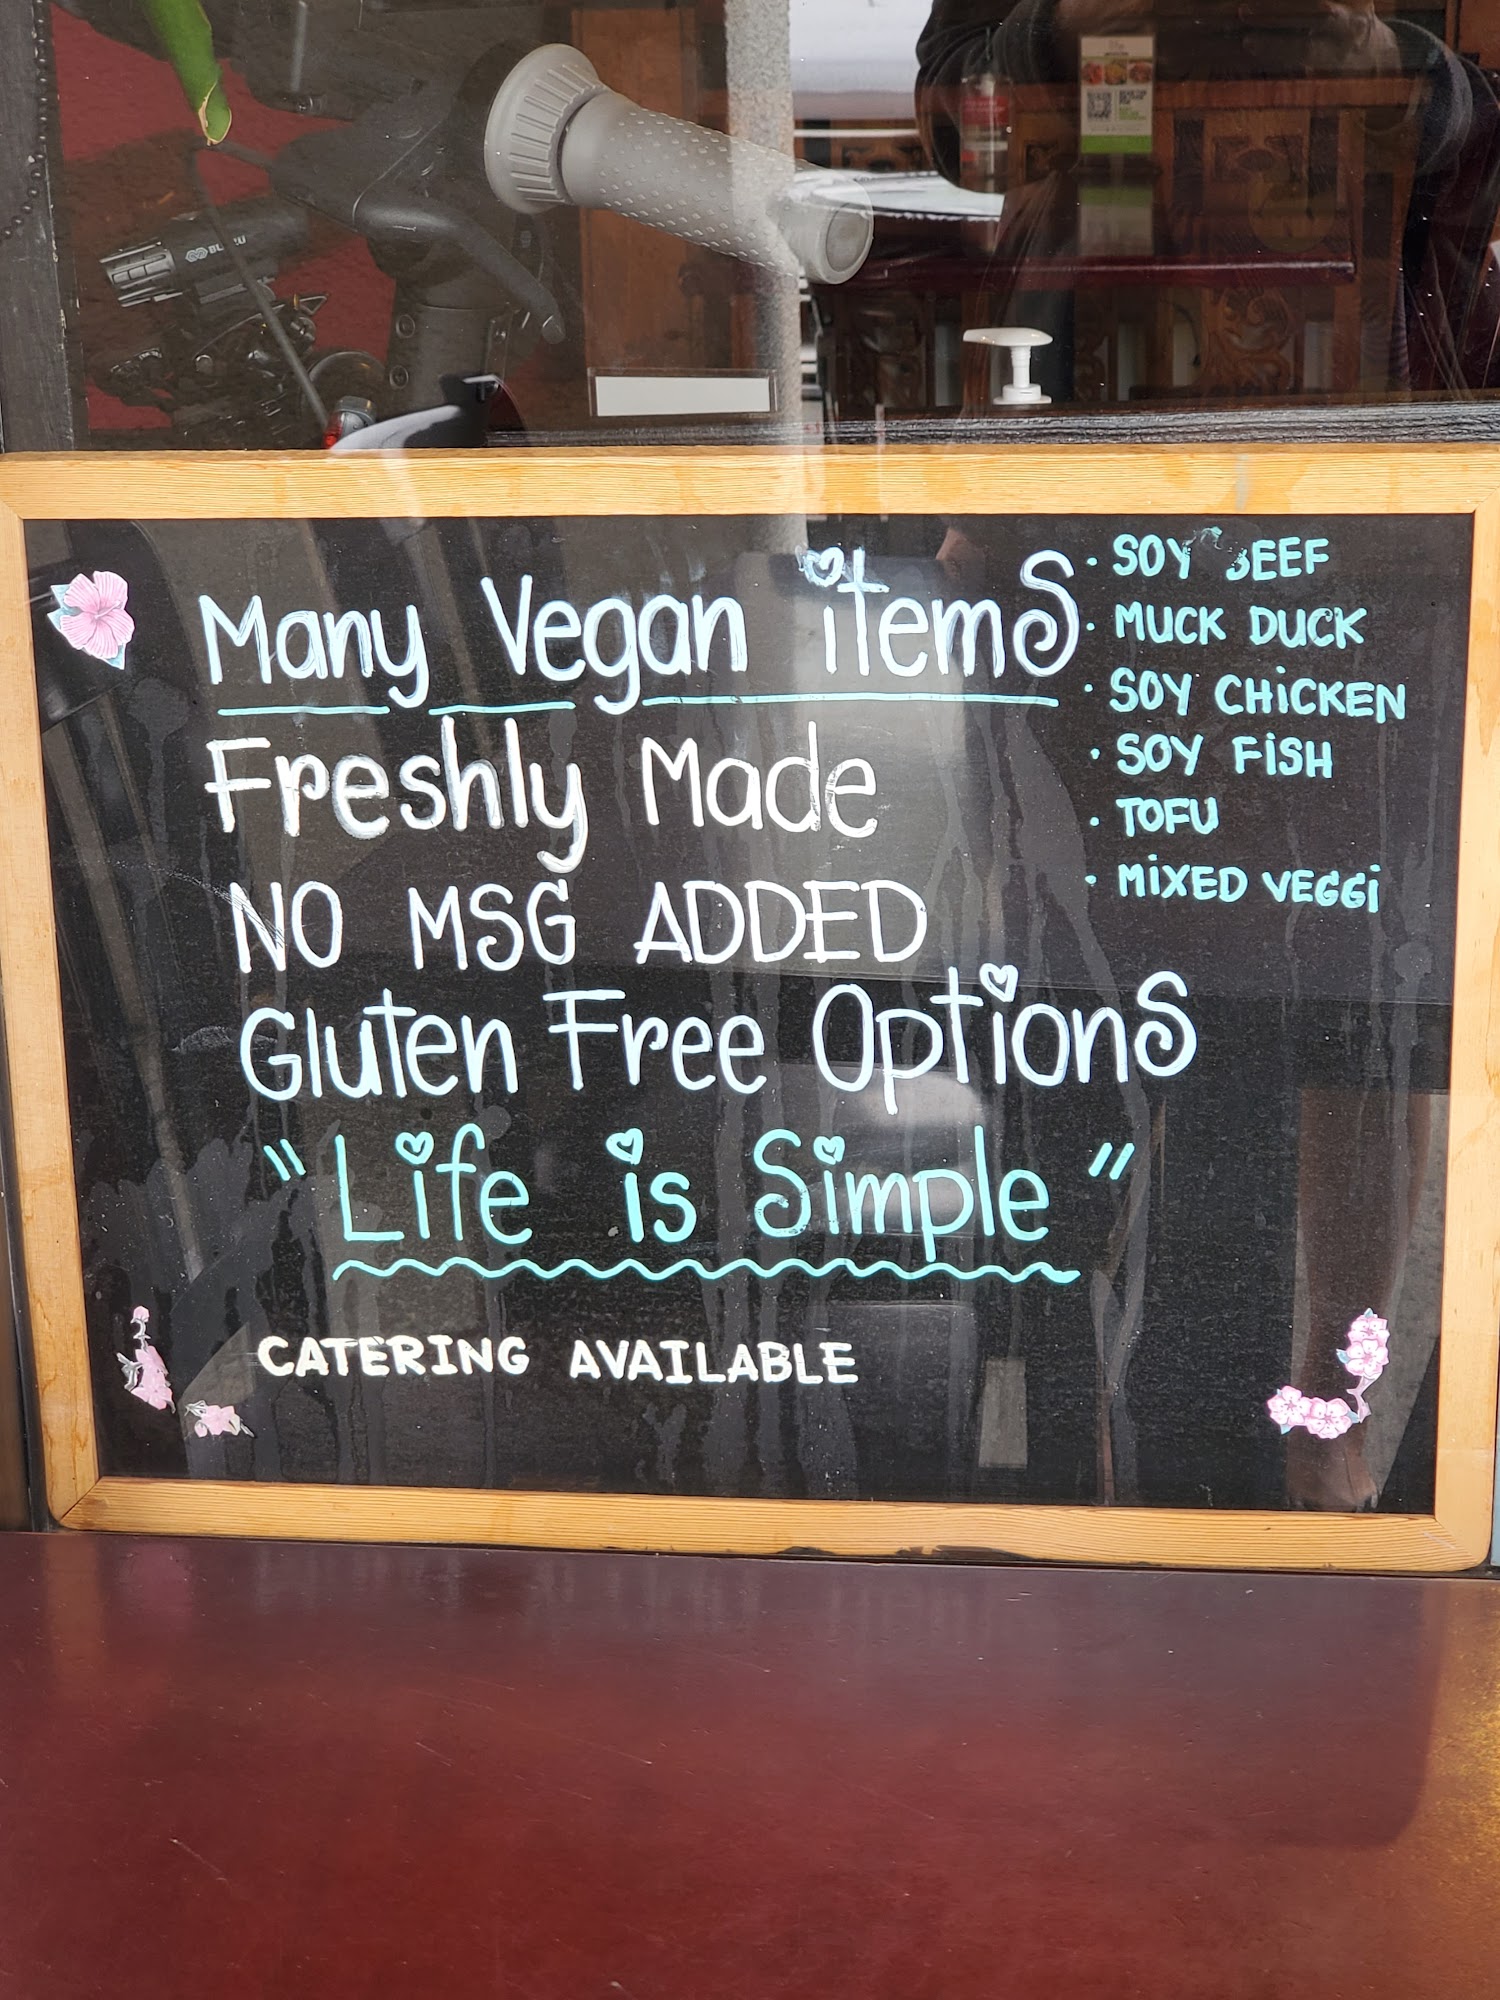 Many Vegan items
Freshly Made
NO MSG ADDED
Gluten Free Options
"Life is Simple"
CATERING AVAILABLE
· SOY BEEF
· MUCK DUCK
· SOY CHiCKEN
· SOY FiSH
· TOFU
· MiXED VEGGi